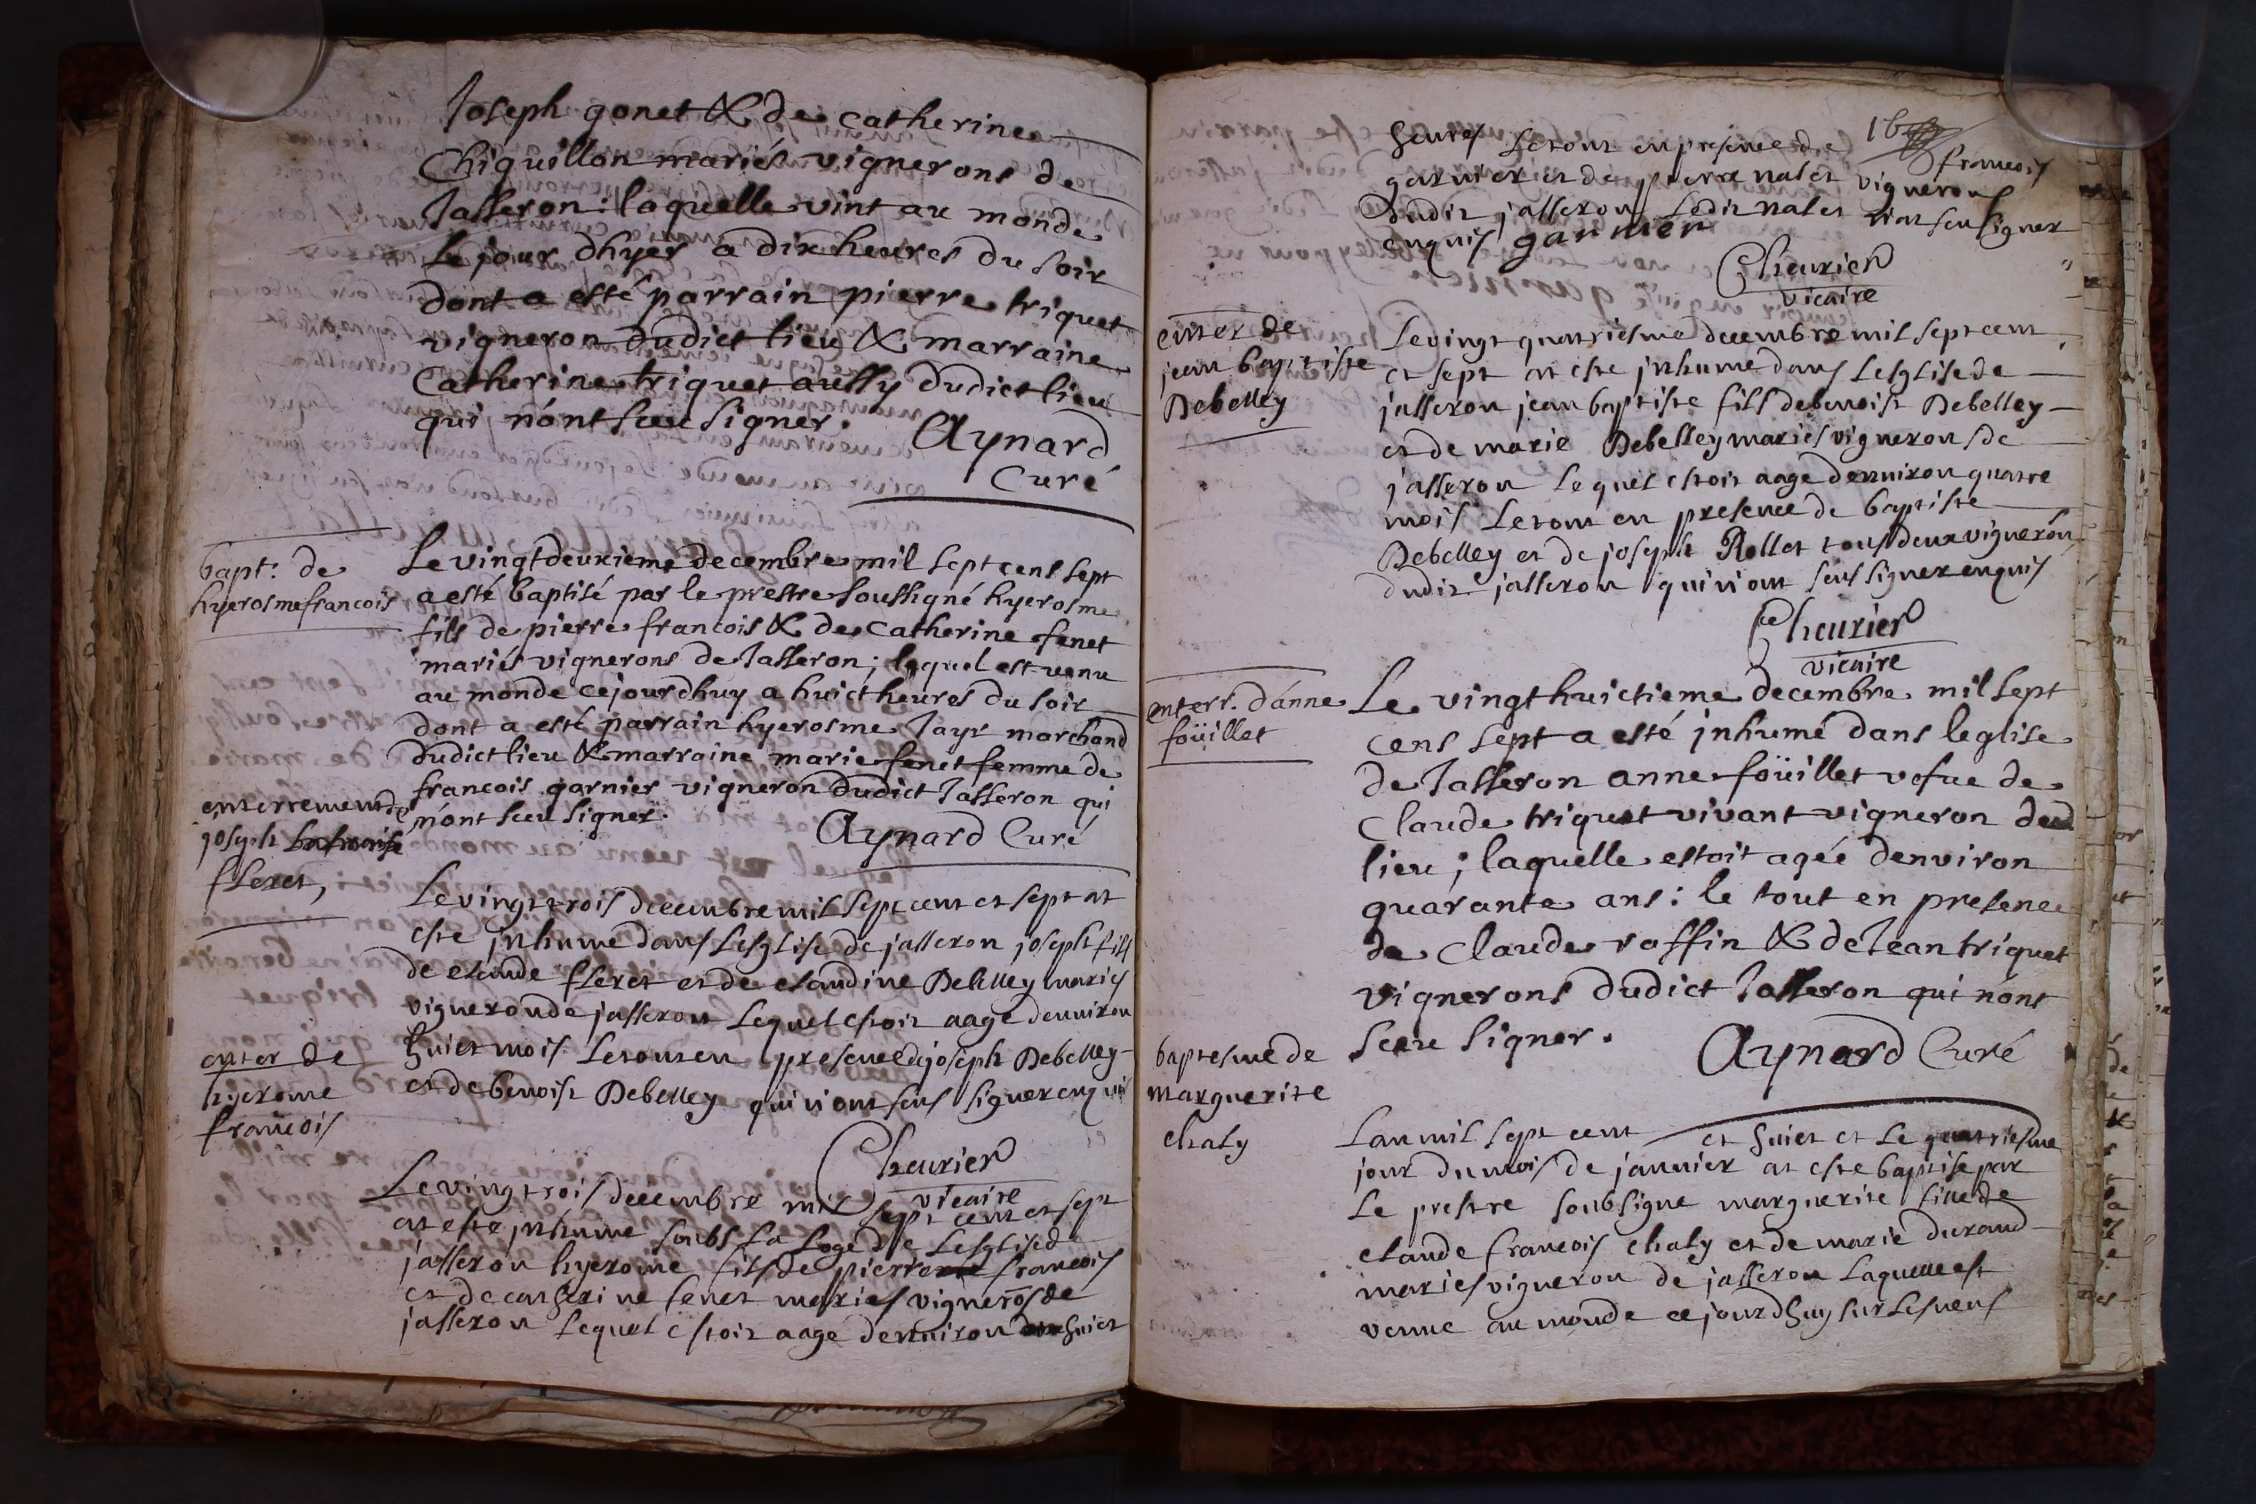 Joseph gonet & de catherine
Chiquillon mariés vignerons de
Jasseron: laquelle vint au monde
le jour dhyer a dix heures du soir
dont a esté parrain pierre triquet
vigneron dudict lieu & marraine
Catherine triquet aussy dudict lieu
qui n'ont sceu signer.
Aynard
Curé
bapt: de
hyerosme francois
Le vingtdeuxieme decembre mil sept cens sept
a esté baptisé par le prestre soussigné hyerosme
fils de pierre francois & de Catherine fenet
mariés vignerons de Jasseron; lequel est venu
au monde cejourdhuy a huict heures du soir
dont a esté parrain hyerosme Jayr marchand
dudict lieu & marraine marie fenet femme de
francois garnier vigneron dudict Jasseron qui
n'ont sceu signer.
Aynard Curé
enterrement de
joseph
floret,
Le vingt trois decembre mil sept cent et sept at
este jnhume dans Lesglise de jasseron joseph fils
de claude floret et de claudine Debelley maries
vigneron de jasseron Lequel estoit aage denuiron
huict mois Le tout en presence de joseph Debelley
et de benoist Debelley qui n ont seus signer enquis
Cheurier
vicaire
enter de
hyerome
francois
Le vingt trois decembre mil sept cent et sept
at este jnhume soubs La Loge de Lesglise de
jasseron hyerome fils de pierre francois
et de catherine fenet maries vignerõs de
jasseron Lequel estoit aage denuiron huict
heures Le tout en presence de francois
garnier et de pierre nalet vignerons
dudit jasseron Ledit nalet n'at seu signer
enquis garnier
Cheurier
vicaire
enter de
jean baptiste
Debelley
Le vingt quatriesme decembre mil sept cent
et sept at este jnhume dans Lesglise de
jasseron jean baptiste fils de benoist Debelley
et de marie Debelley maries vignerons de
jasseron Lequel estoit aage denuiron quatre
mois Le tout en presence de baptiste
Debelley et de joseph Rollet tous deux vignerõn
dudit jasseron qui n'ont seus signer enquis
Cheurier
vicaire
enterr. d'anne
foüillet
Le vingt huictieme decembre mil sept
cens sept a esté jnhumé dans leglise
de Jasseron anne foüillet vefue de
Claude triquet vivant vigneron dud
lieu; laquelle estoit agée denviron
quarante ans: le tout en presence
de Claude raffin & de Jean triquet
vignerons dudict Jasseron qui n'ont
sceu signer.
Aynard Curé
baptesme de
marguerite
chaly
Lan mil sept cent et huict et Le quatriesme
jour du mois de januier at este baptise par
Le prestre soubsigne marguerite fille de
claude francois chaly et de marie durand
maries vigneron de jasseron Laquelle est
venue au monde ce jourdhuy sur Les neuf